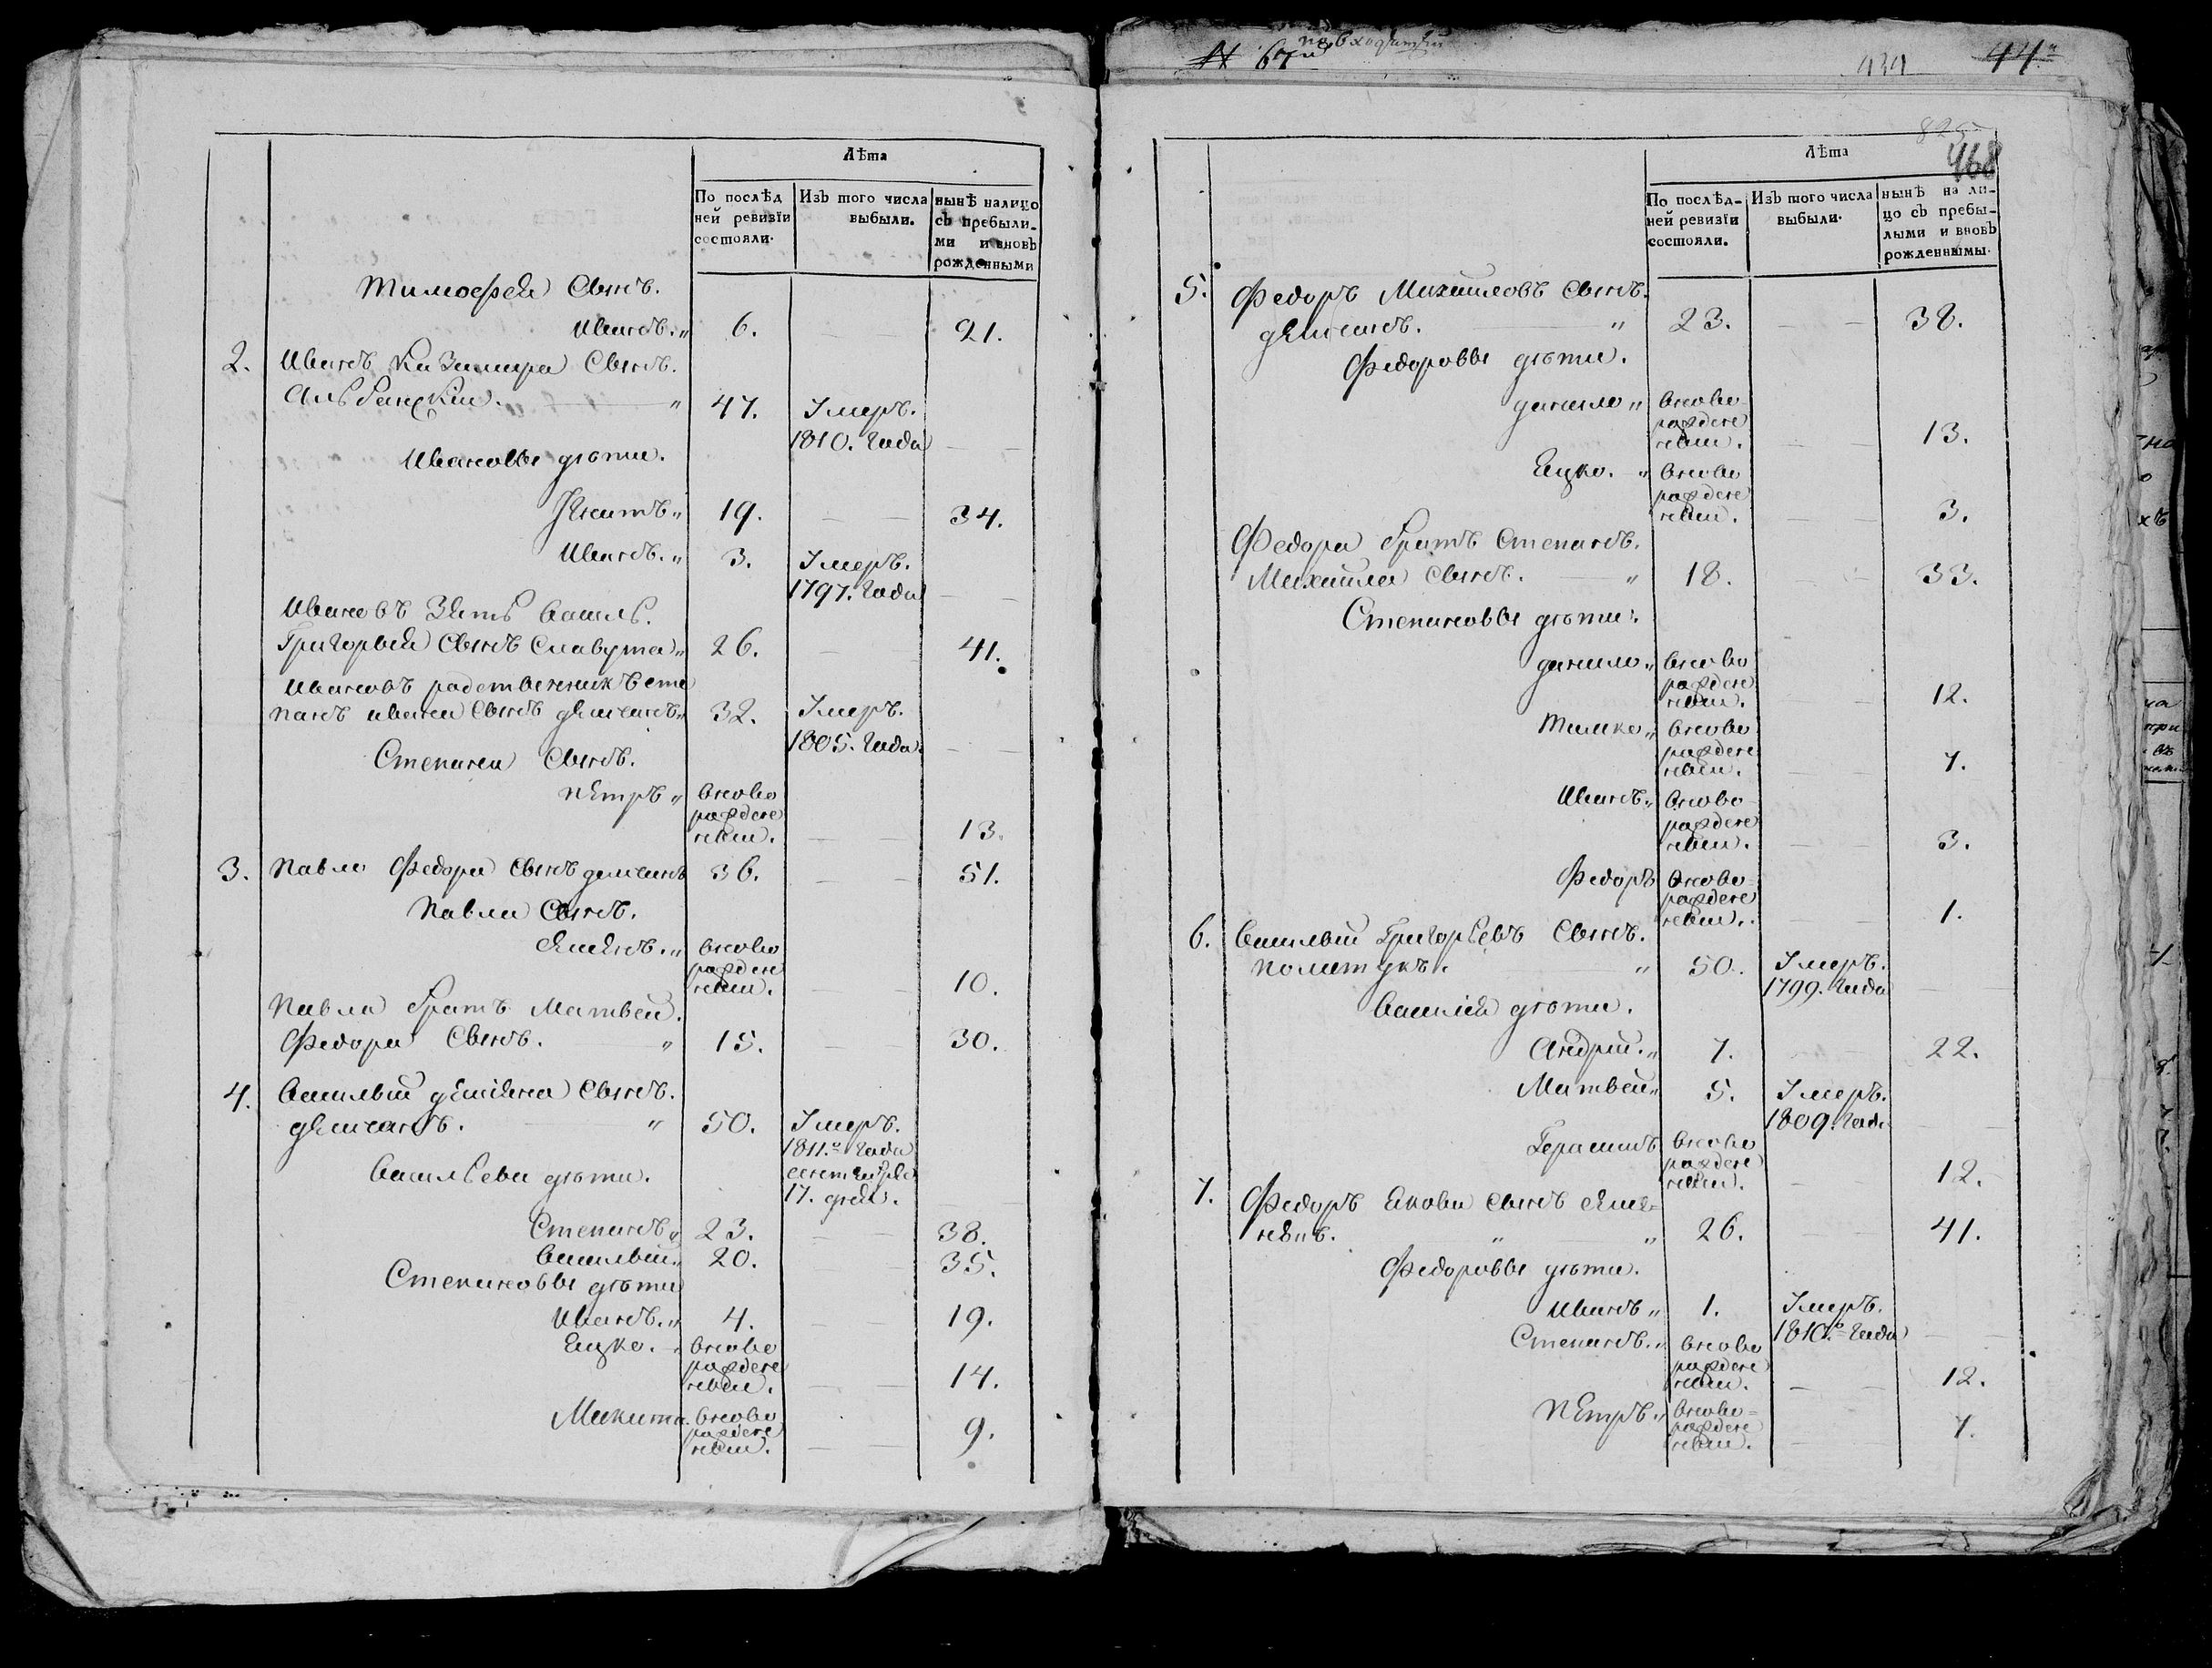 Лѣта
По послѣд
ней ревизїи
состояли.
Изъ того числа
выбыли.
нынѣ налицо
съ пребылы-
ми и вновь
рожденными
Тимофея Сынъ.
Иванъ. „ 6. — — 21.
2. Иванъ Казимира Сынъ.
Альбанский. „ 47. Умеръ.
1810. Года — —
Ивановы дѣти.
19. — — 34.
Иванъ. „ 3. Умеръ.
1797. Года — —
Ивановъ Зять Василь.
Григорья Сынъ Славута „ 26. — — 41.
Ивановъ радственникъ Сте
панъ ивана Сынъ демчанъ „ 32. Умеръ.
1805. Года. — —
Степана Сынъ.
Петръ „ вново
рожде
ны. — — 13.
3. Павло Федора Сынъ демчанъ 36. — — 51.
Павла Сынъ.
Семенъ. „ вново
рожде
ны. — — 10.
Павла братъ Матвей.
Федора Сынъ. „ 15. — — 30.
4. Василий демяна Сынъ.
демчанъ. „ 50. Умеръ.
1811.го Года
сентября
17. дня. — —
Васильева дѣти.
Степанъ „ 23. — — 38.
Василий „ 20. — — 35.
Степановы дѣти
Иванъ. „ 4. — — 19.
Яцко. „ вново
рожде
ны. — — 14.
Микита. вново
рожде
ны. — — 9.
№ 67й
434 44й
825
468
Лѣта
По послѣд-
ней ревизїи
состояли.
Изъ того числа
выбыли.
нынѣ на ли-
цо съ пребы-
лыми и вновь
рожденнымы.
5. Федоръ Михайловъ Сынъ.
демчанъ. „ 23. — — 38.
Федоровы дѣти.
данило „ вново
рожде
ны. — — 13.
Яцко. „ вново
рожде
ны. — — 3.
Федора братъ Степанъ.
Михайла Сынъ. „ 18. — 33.
Степановы дѣти.
данило „ вново
рожде
ны. — — 12.
Тимко „ вново
рожде
ны. — — 7.
Иванъ „ вново
рожде
ны. — — 3.
Федоръ вново
рожде
ны. — — 1.
6. Василий Григорьевъ Сынъ.
полищукъ. „ 50. Умеръ.
1799. Года — —
Василия дѣти.
Андрий. „ 7. 22.
Матвей „ 5. Умеръ.
1809. Года — —
Герасимъ вново
рожде
ны. — — 12.
7. Федоръ Якова Сынъ Семе-
нюкъ. „ „ 26. — — 41.
Федоровы дѣти.
Иванъ „ 1. Умеръ.
1810.го Года — —
Степанъ. „ вново
рожде
ны. — — 12.
Петръ. „ вново
рожде
ны. — 7.